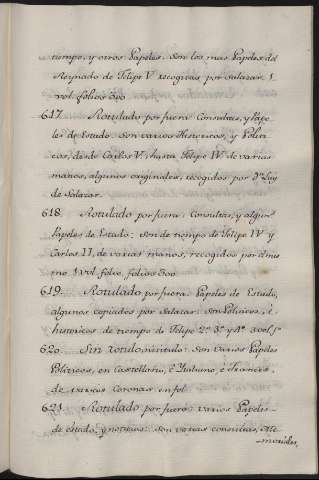 tiempo, y otros Papeles. Son los mas Papeles del
Reynado de Felipe V recogidos por Salazar. 1
vol. folios 300
617 Rotulado por fuera Consultas, y Pape
les de Estado. Son varios Historicos, y Politi
cos, desde Carlos V. hasta Felipe IV de varias
manos, algunos originales, recogidos por Dn Luis
de Salazar.
618 Rotulado por fuera: Consultas, y algun
Papeles de Estado: Son de tiempo de Felipe IV y
Carlos II, de varias manos, recogidos por el mis
mo 1 vol. folio, folios 300
619. Rotulado por fuera: Papeles de Estado,
algunos copiados por Salazar: Son Politicos, é
historicos de tiempo de Felipe 2º 3º y 4º
620. Sin rotulo, ni titulo: Son varios Papeles
Politicos, en Castellano, é Italiano, é Frances,
de varias Coronas en fol.
621 Rotulado por fuera: varios Papeles
de estado, y noticias: son varias consultas, Me
-moriales,